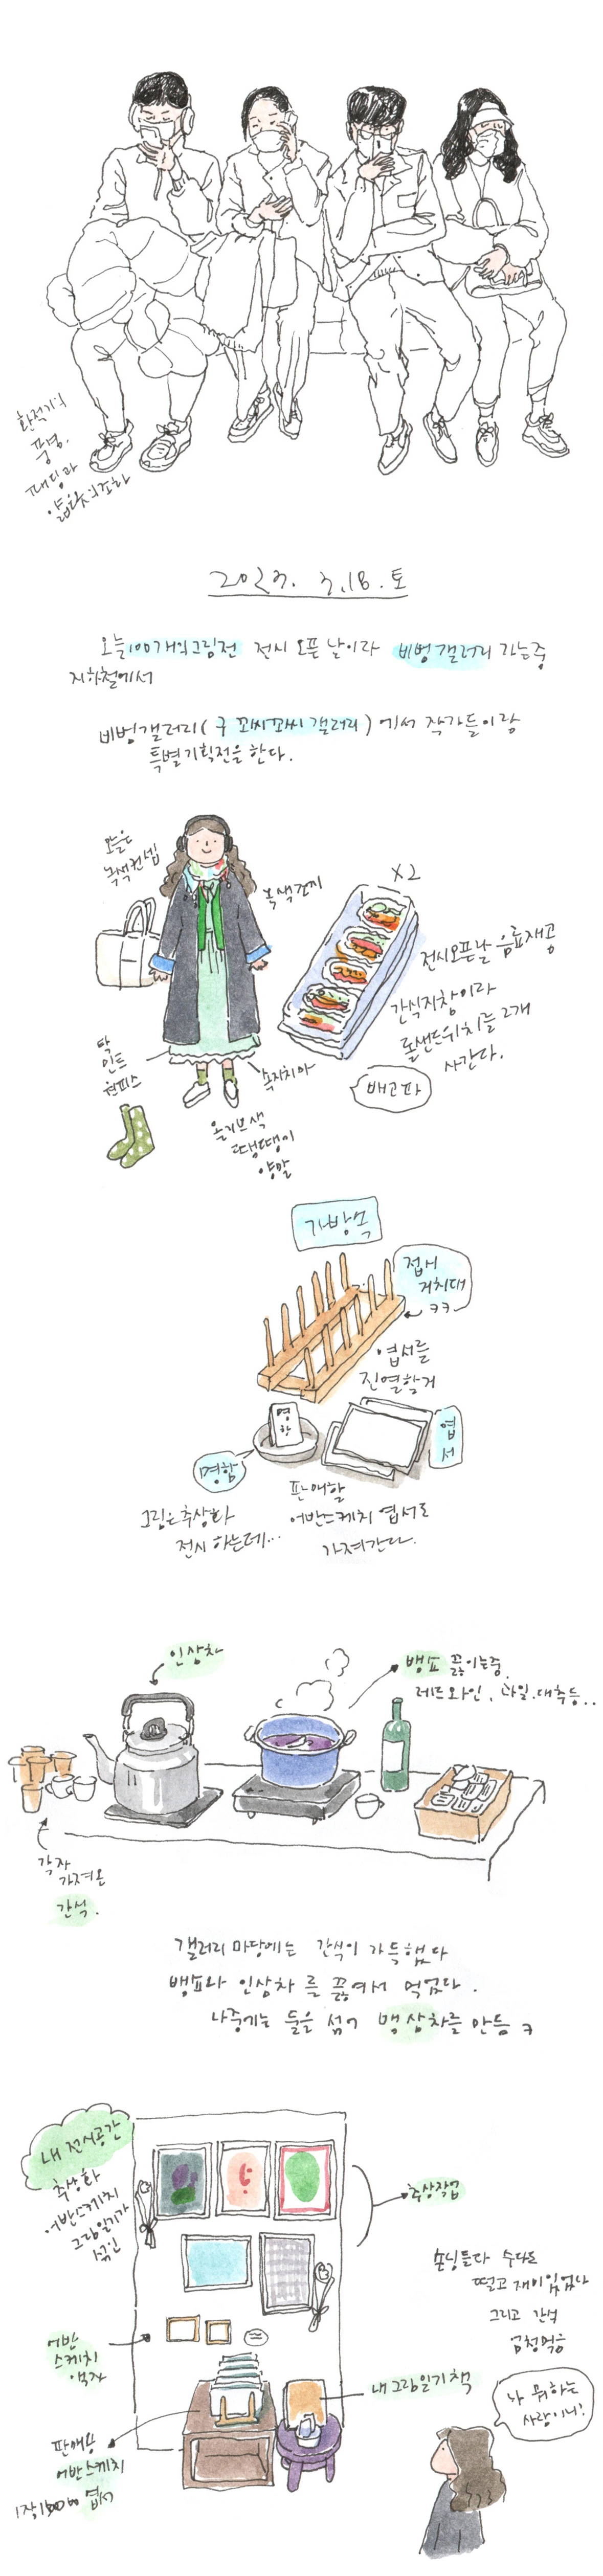 환절기의
풍경.
패딩과
얇은옷의조화
2023. 3.18. 토
오늘 100개의그림전 전시 오픈 날이라 비벙갤러리 가는중
지하철에서
비벙갤러리( 구 꼬씨꼬씨갤러리 ) 에서 작가들이랑
특별기획전을 한다.
오늘은
녹색컨셉
녹색
X2
전시오픈날 음료제공
간식지참이라
롤샌드위치를 2개
사간다.
배고파
민트
원피스
속치마
올리브색
땡땡이
양말
가방속
접시
거치대
ㅋㅋ
엽서를
진열할거
명함
명함
엽서
판매할
어반스케치 엽서도
가져간다.
그림은추상화
전시 하는데...
인삼차
뱅쇼 끓이는중.
레드와인, 과일.대추등..
각자
가져온
간식.
갤러리 마당에는 간식이 가득했다
뱅쇼와 인삼차를 끓여서 먹었다.
나중에는 둘을 섞어 뱅삼차를 만듬 ㅋ
내 전시공간
추상화
어반스케치
그림일기가
섞인
추상작업
손님들과 수다도
떨고 재미있었다
그리고 간식
엄청먹음
어반
스케치
액자
내그림일기책
나 뭐하는
사람이니?
판매용
어반스케치
엽서